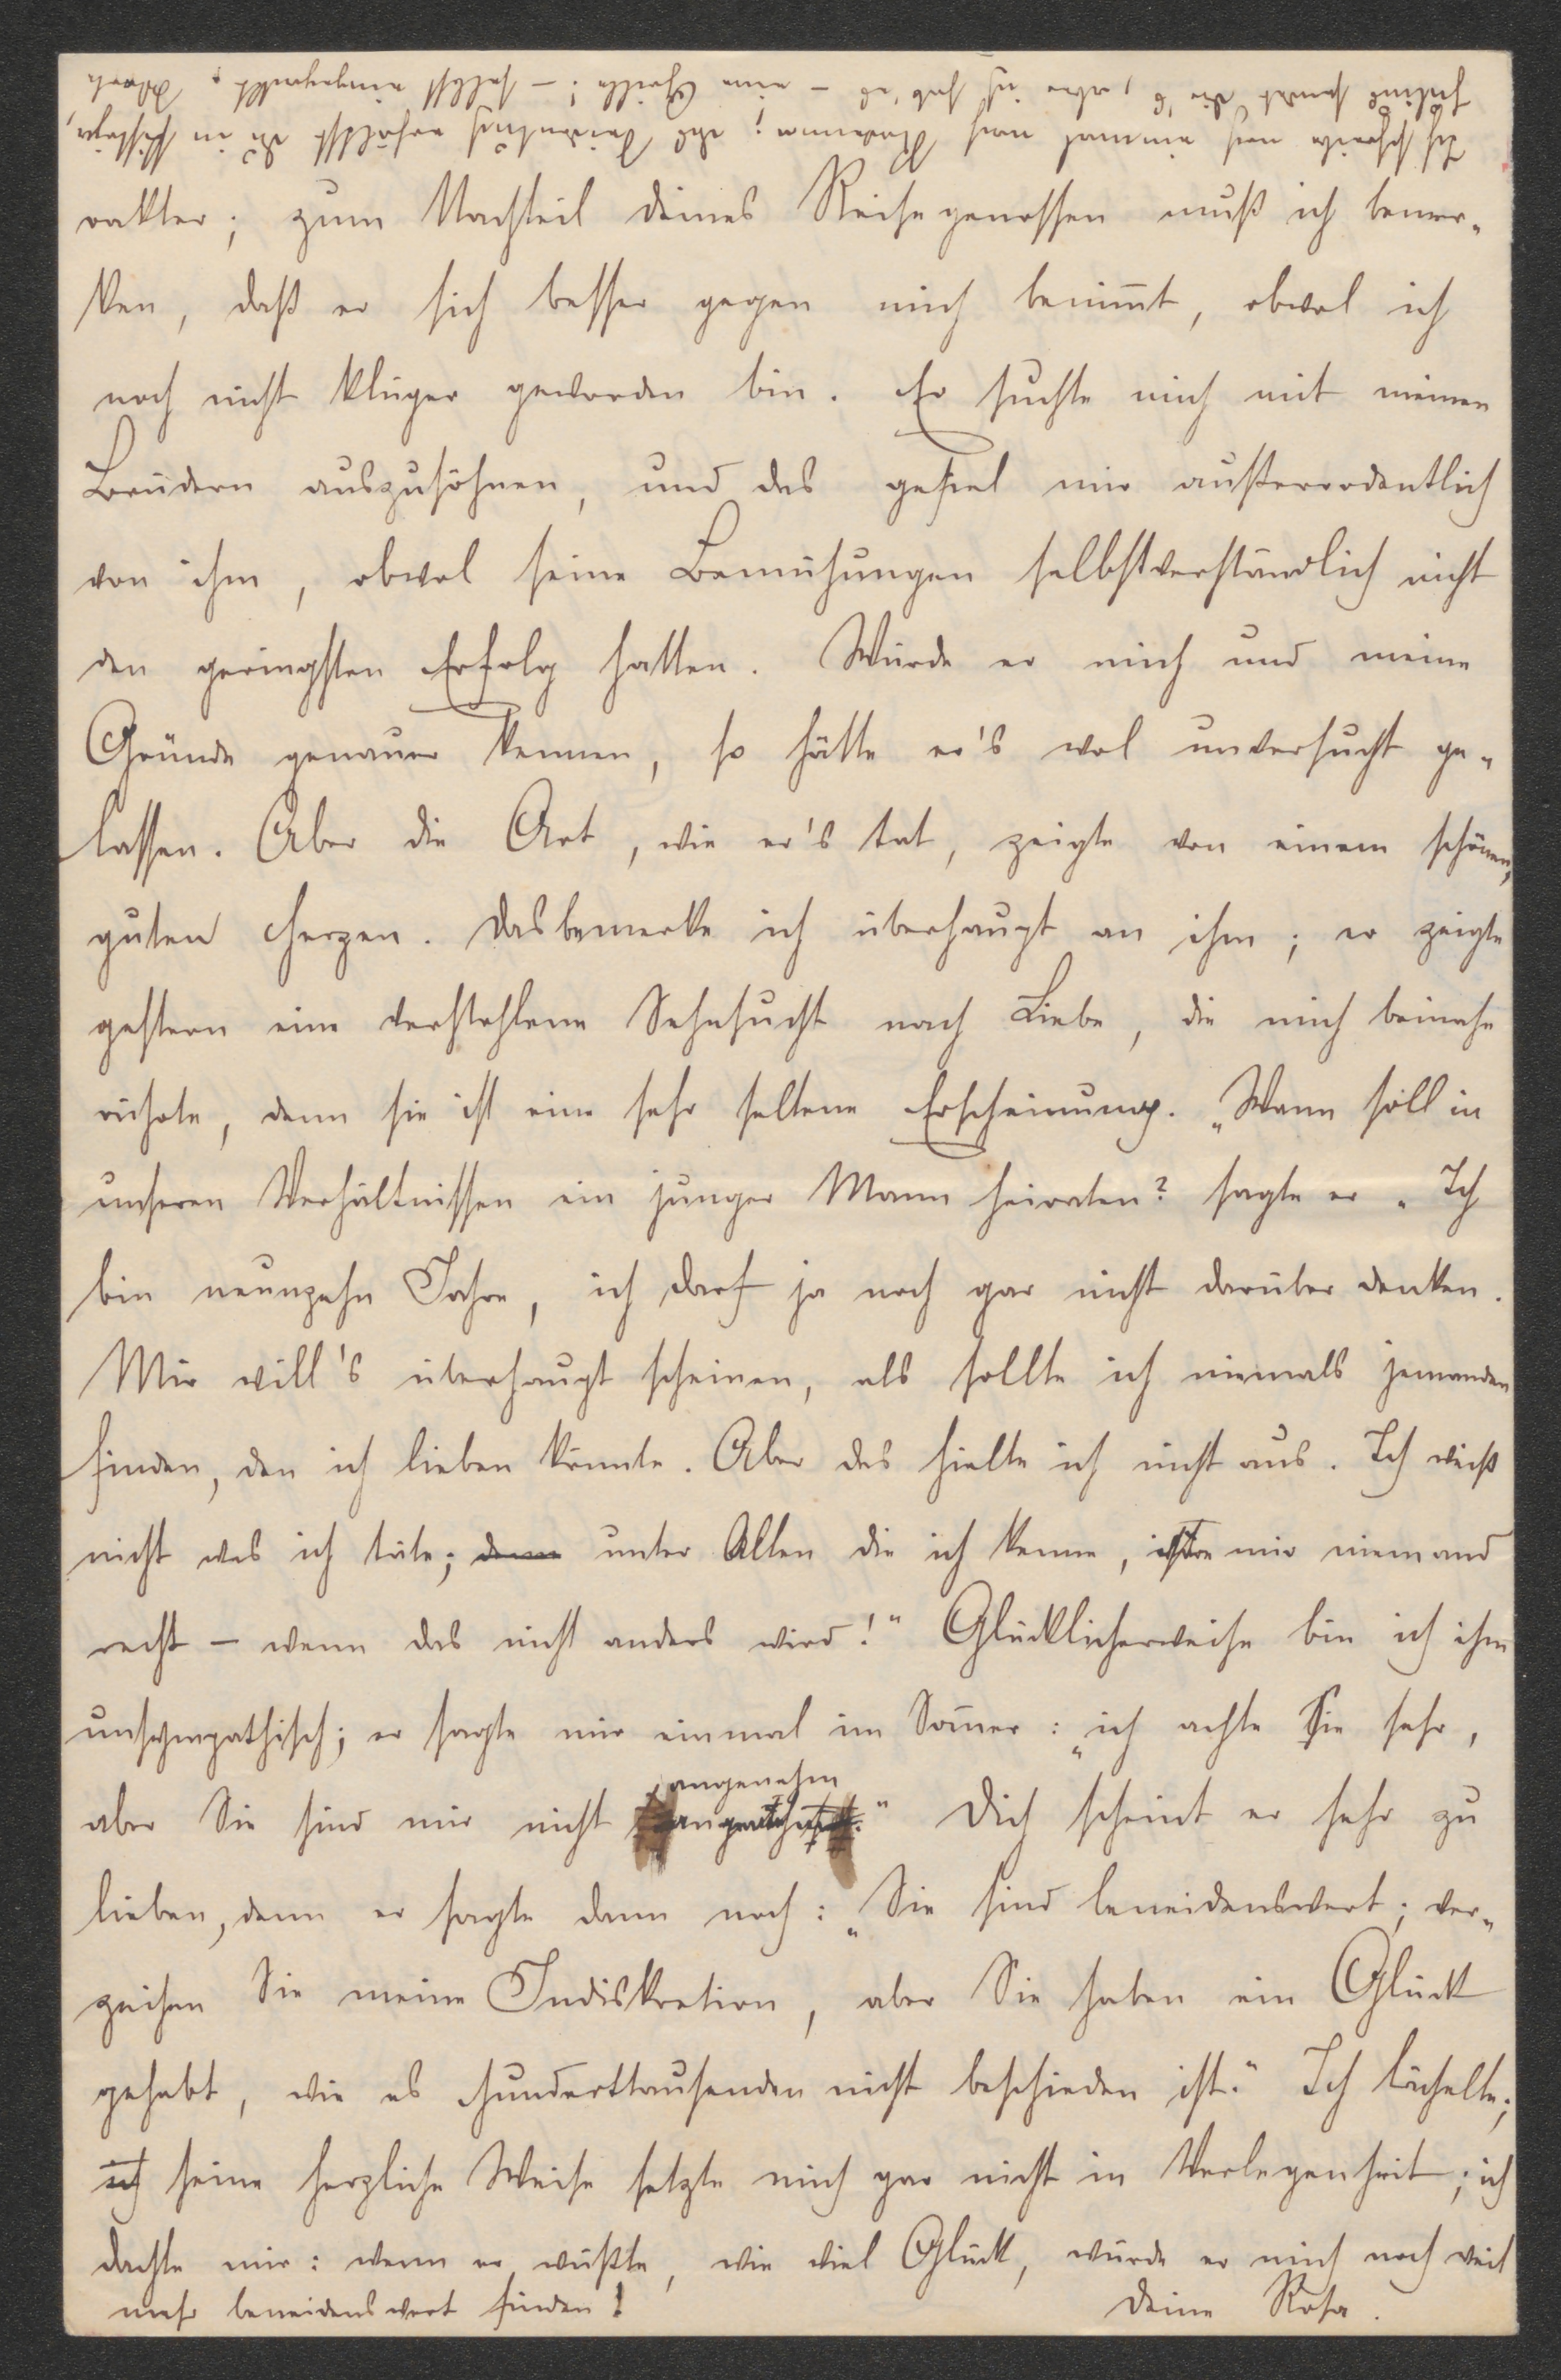 rakter; zum Nachteil deines Reisegenossen muß ich bemer-
ken, daß er sich besser gegen mich benim̄t, obwol ich
noch nicht klüger geworden bin. Er suchte mich mit meinen
Brüdern auszusöhnen, und das gefiel mir außerordentlich
von ihm, obwol seine Bemühungen selbstverständlich nicht
den geringsten Erfolg hatten. Würde er mich und meine
Gründe genauer kennen, so hätte er's wol unversucht ge-
lassen. Aber die Art, wie er's tat, zeigte von einem schönen,
guten Herzen. Das bemerke ich überhaupt an ihm; er zeigte
gestern eine verstohlene Sehnsucht nach Liebe, die mich beinahe
rührte, denn sie ist eine sehr seltene Erscheinung. „Wann soll in
unseren Verhältnissen ein junger Mann heiraten? sagte er „Ich
bin neunzehn Jahre, ich darf ja noch gar nicht darüber denken.
Mir will's überhaupt scheinen, als sollte ich niemals jemanden
finden, den ich lieben könnte. Aber das hielte ich nicht aus. Ich weiß
nicht was ich täte; denn unter Allen die ich kenne, mir niemand
recht – wenn das nicht anders wird!" Glücklicherweise bin ich ihm
unsympathisch; er sagte mir einmal im Som̄er: „ich achte Sie sehr,
aber Sie sind mir nicht angenehm." Dich scheint er sehr zu
lieben, denn er sagte dann noch: „Sie sind beneidenswert; ver-
zeihen Sie meine Indiskretion, aber Sie haben ein Glück
gehabt, wie es Hunderttausenden nicht beschieden ist." Ich lächelte;
ich seine herzliche Weise setzte mich gar nicht in Verlegenheit; ich
dachte mir: wenn er wüßte, wie viel Glück, würde er mich noch weit
mehr beneidenswert finden!
Deine Rosa.
Ich schreibe noch einmal nach Modena; das
– eine Grille! – selbst